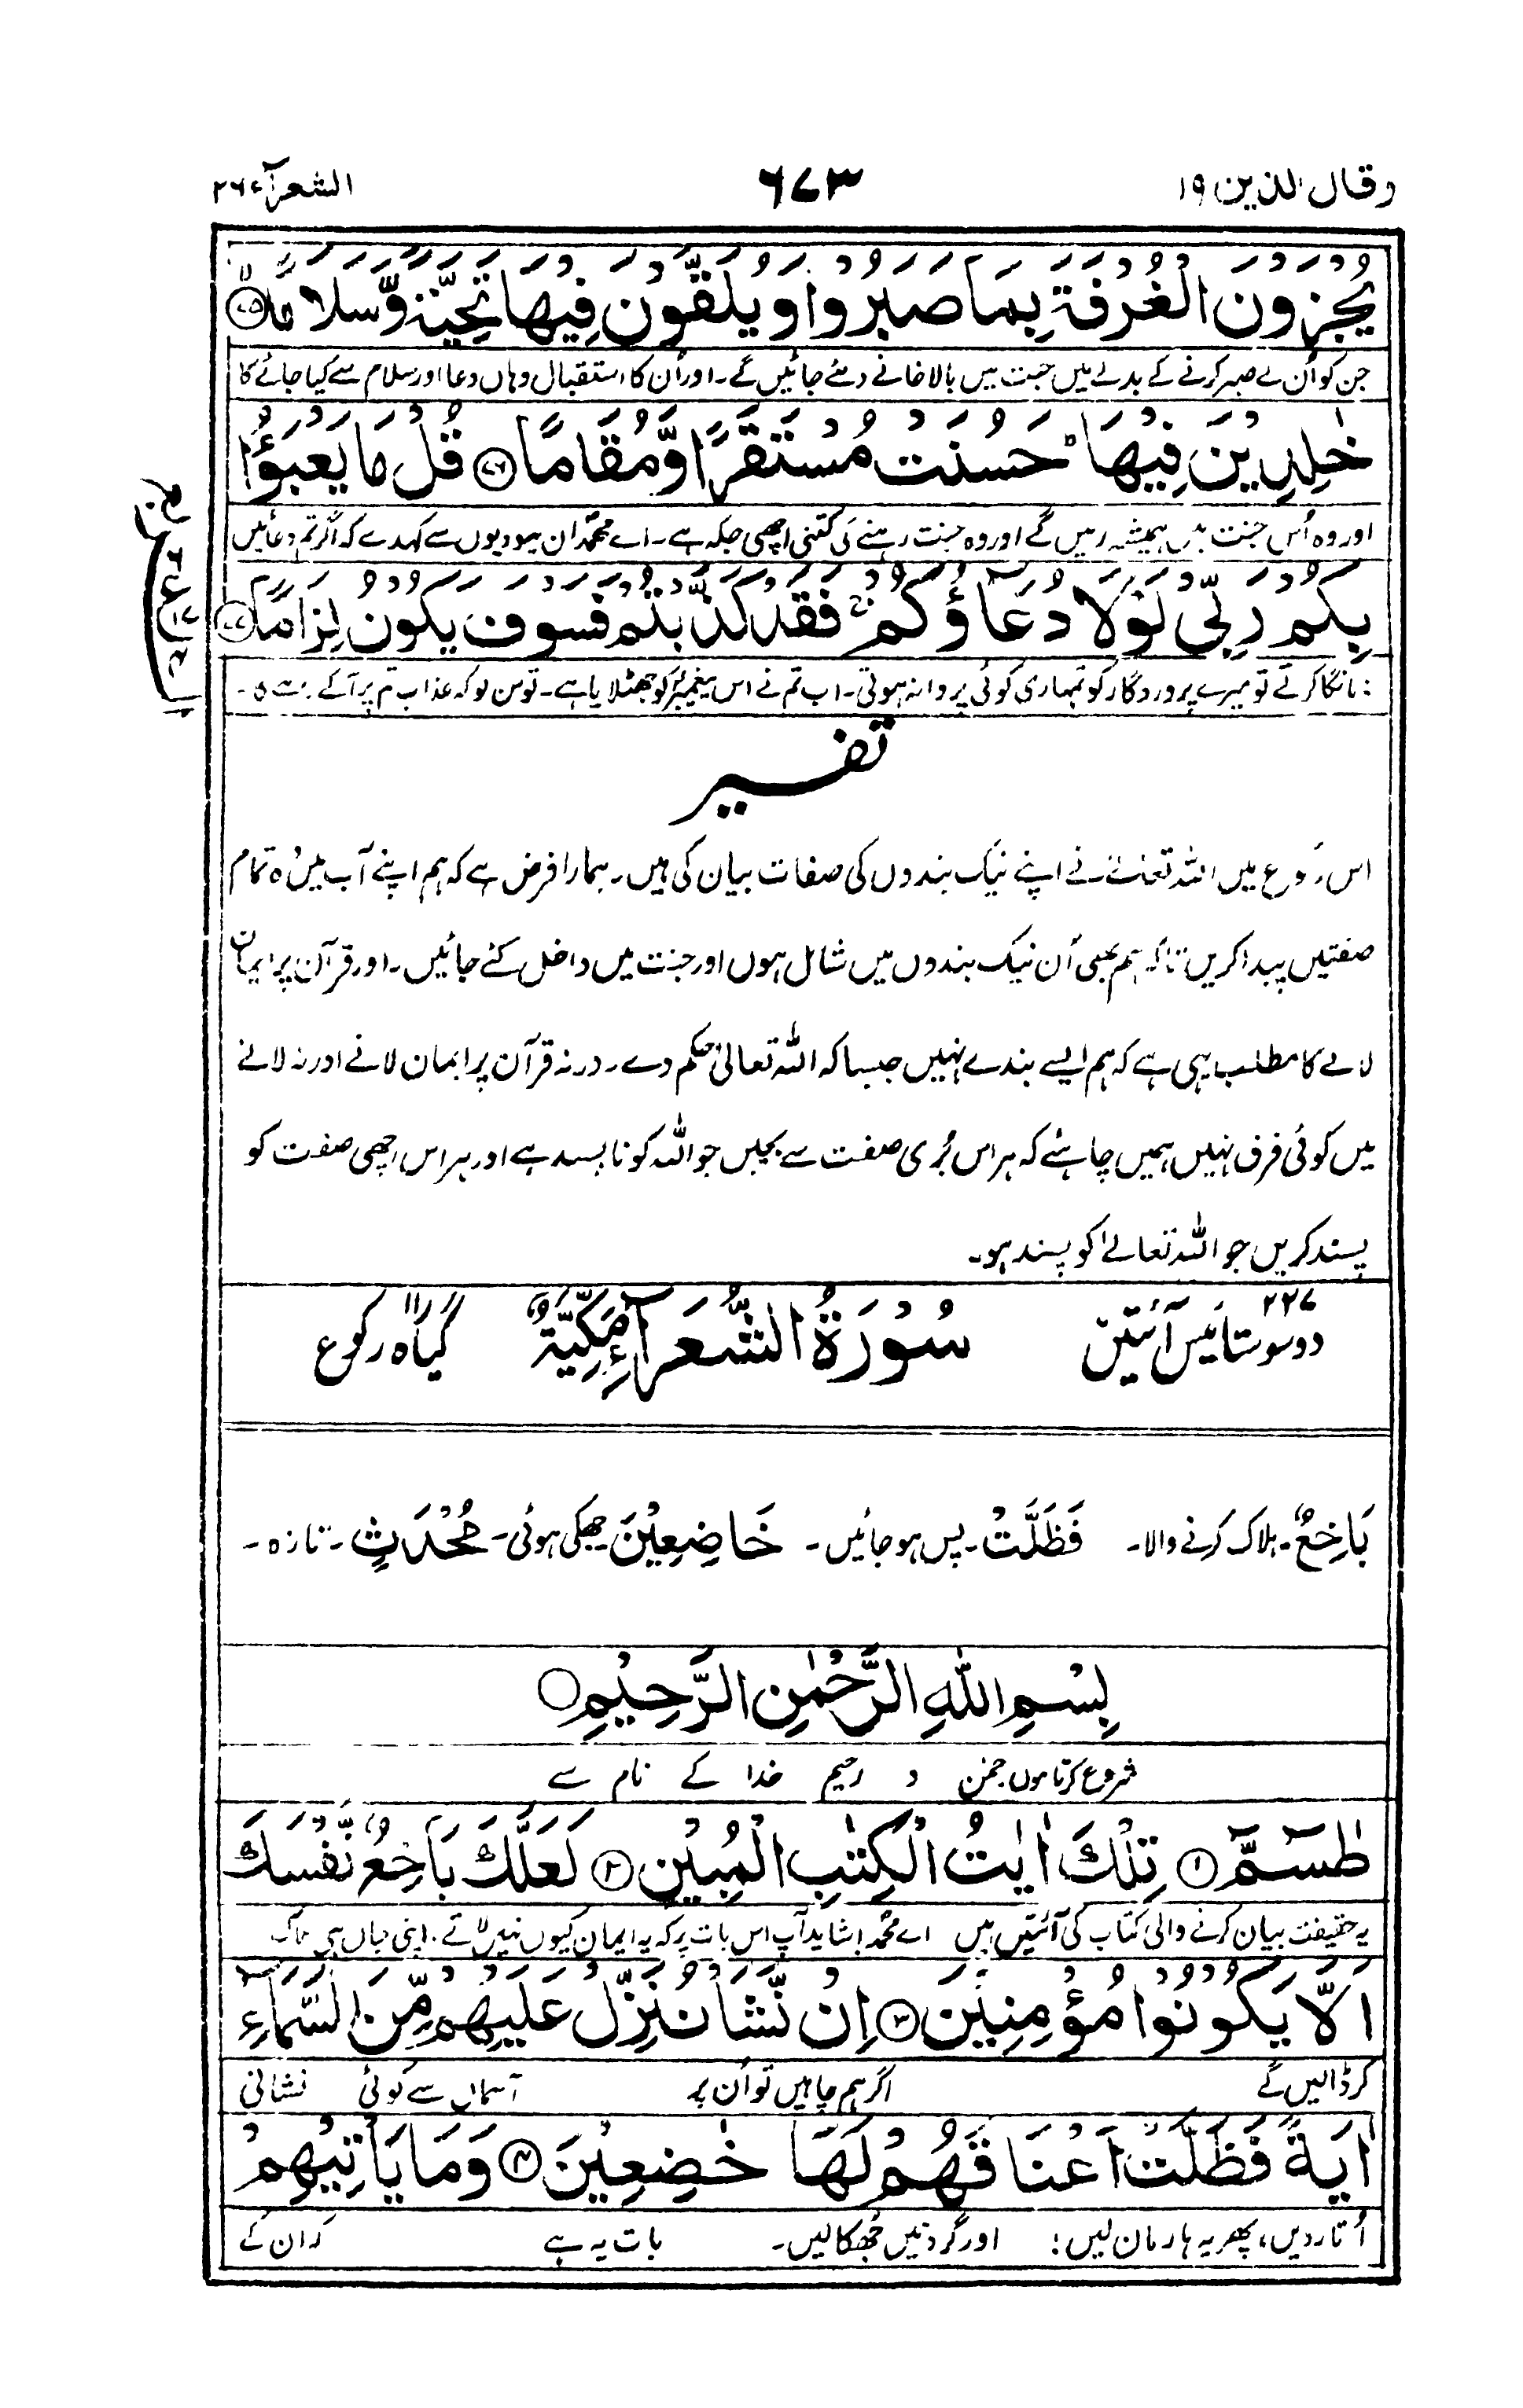 وقال الذین ۱۹ ۶۷۳ الشعرآء ۲۶
یُجْزَوْنَ الْغُرْفَةَ بِمَا صَبَرُوْا وَیُلَقَّوْنَ فِیْهَا تَحِیَّةً وَّسَلَامًا ۷۵
جن کو اُن کے صبر کرنے کے بدلے میں جنت میں بالاخانے دئے جائیں گے۔ اور اُن کا استقبال وہاں دعا اور سلام سے کیا جائے گا
خٰلِدِیْنَ فِیْهَا ؕ حَسُنَتْ مُسْتَقَرًّا وَّمُقَامًا ۷۶ قُلْ مَا یَعْبَؤُا
اور وہ اُس جنت میں ہمیشہ رہیں گے اور وہ جنت رہنے کی کتنی اچھی جگہ ہے۔ اے محمدؐ ان یہودیوں سے کہدے کہ اگر تم دعائیں
بِكُمْ رَبِّیْ لَوْلَا دُعَآؤُكُمْ ۚ فَقَدْ كَذَّبْتُمْ فَسَوْفَ یَكُوْنُ لِزَامًا ۷۷
نہ مانگا کرتے تو میرے پروردگار کو تمہاری کوئی پروا نہ ہوتی۔ اب تم نے اس پیغمبرؐ کو جھٹلایا ہے۔ تو سن لو کہ عذاب تم پر آکے رہے گا۔
تفسیر
اس رکوع میں اللہ تعالےٰ نے اپنے نیک بندوں کی صفات بیان کی ہیں۔ ہمارا فرض ہے کہ ہم اپنے آپ میں وہ تمام
صفتیں پیدا کریں تاکہ ہم بھی اُن نیک بندوں میں شامل ہوں اور جنت میں داخل کئے جائیں۔ اور قرآن پر ایمان
لانے کا مطلب یہی ہے کہ ہم ایسے بندے بنیں جیسا کہ اللہ تعالیٰ حکم دے۔ ورنہ قرآن پر ایمان لانے اور نہ لانے
میں کوئی فرق نہیں ہمیں چاہئے کہ ہر اس بُری صفت سے بچیں جو اللہ کو ناپسند ہے اور ہر اس اچھی صفت کو
پسند کریں جو اللہ تعالےٰ کو پسند ہو۔
۲۲۷ دو سو ستائیس آئتیں سُوْرَةُ الشُّعَرَآءِ مَكِّیَّةٌ ۱۱ گیارہ رکوع
بَاخِعٌ۔ ہلاک کرنے والا۔ فَظَلَّتْ۔ پس ہو جائیں۔ خَاضِعِیْنَ۔ جھکی ہوئی۔ مُحْدَثٍ۔ تازہ۔
بِسْمِ اللّٰهِ الرَّحْمٰنِ الرَّحِیْمِ
شروع کرتا ہوں رحمٰن و رحیم خدا کے نام سے
طٰسٓمّٓ ۱ تِلْكَ اٰیٰتُ الْكِتٰبِ الْمُبِیْنِ ۲ لَعَلَّكَ بَاخِعٌ نَّفْسَكَ
یہ حقیقت بیان کرنے والی کتاب کی آئتیں ہیں اے محمدؐ! شاید آپ اس بات پر کہ یہ ایمان کیوں نہیں لاتے۔ اپنی جان ہی ہلاک
اَلَّا یَكُوْنُوْا مُؤْمِنِیْنَ ۳ اِنْ نَّشَاْ نُنَزِّلْ عَلَیْهِمْ مِّنَ السَّمَآءِ
کر ڈالیں گے اگر ہم چاہیں تو اُن پر آسماں سے کوئی نشانی
اٰیَةً فَظَلَّتْ اَعْنَاقُهُمْ لَهَا خٰضِعِیْنَ ۴ وَمَا یَاْتِیْهِمْ
اُتار دیں، پھر یہ ہار مان لیں؛ اور گردنیں جُھکا لیں۔ بات یہ ہے کہ ان کے